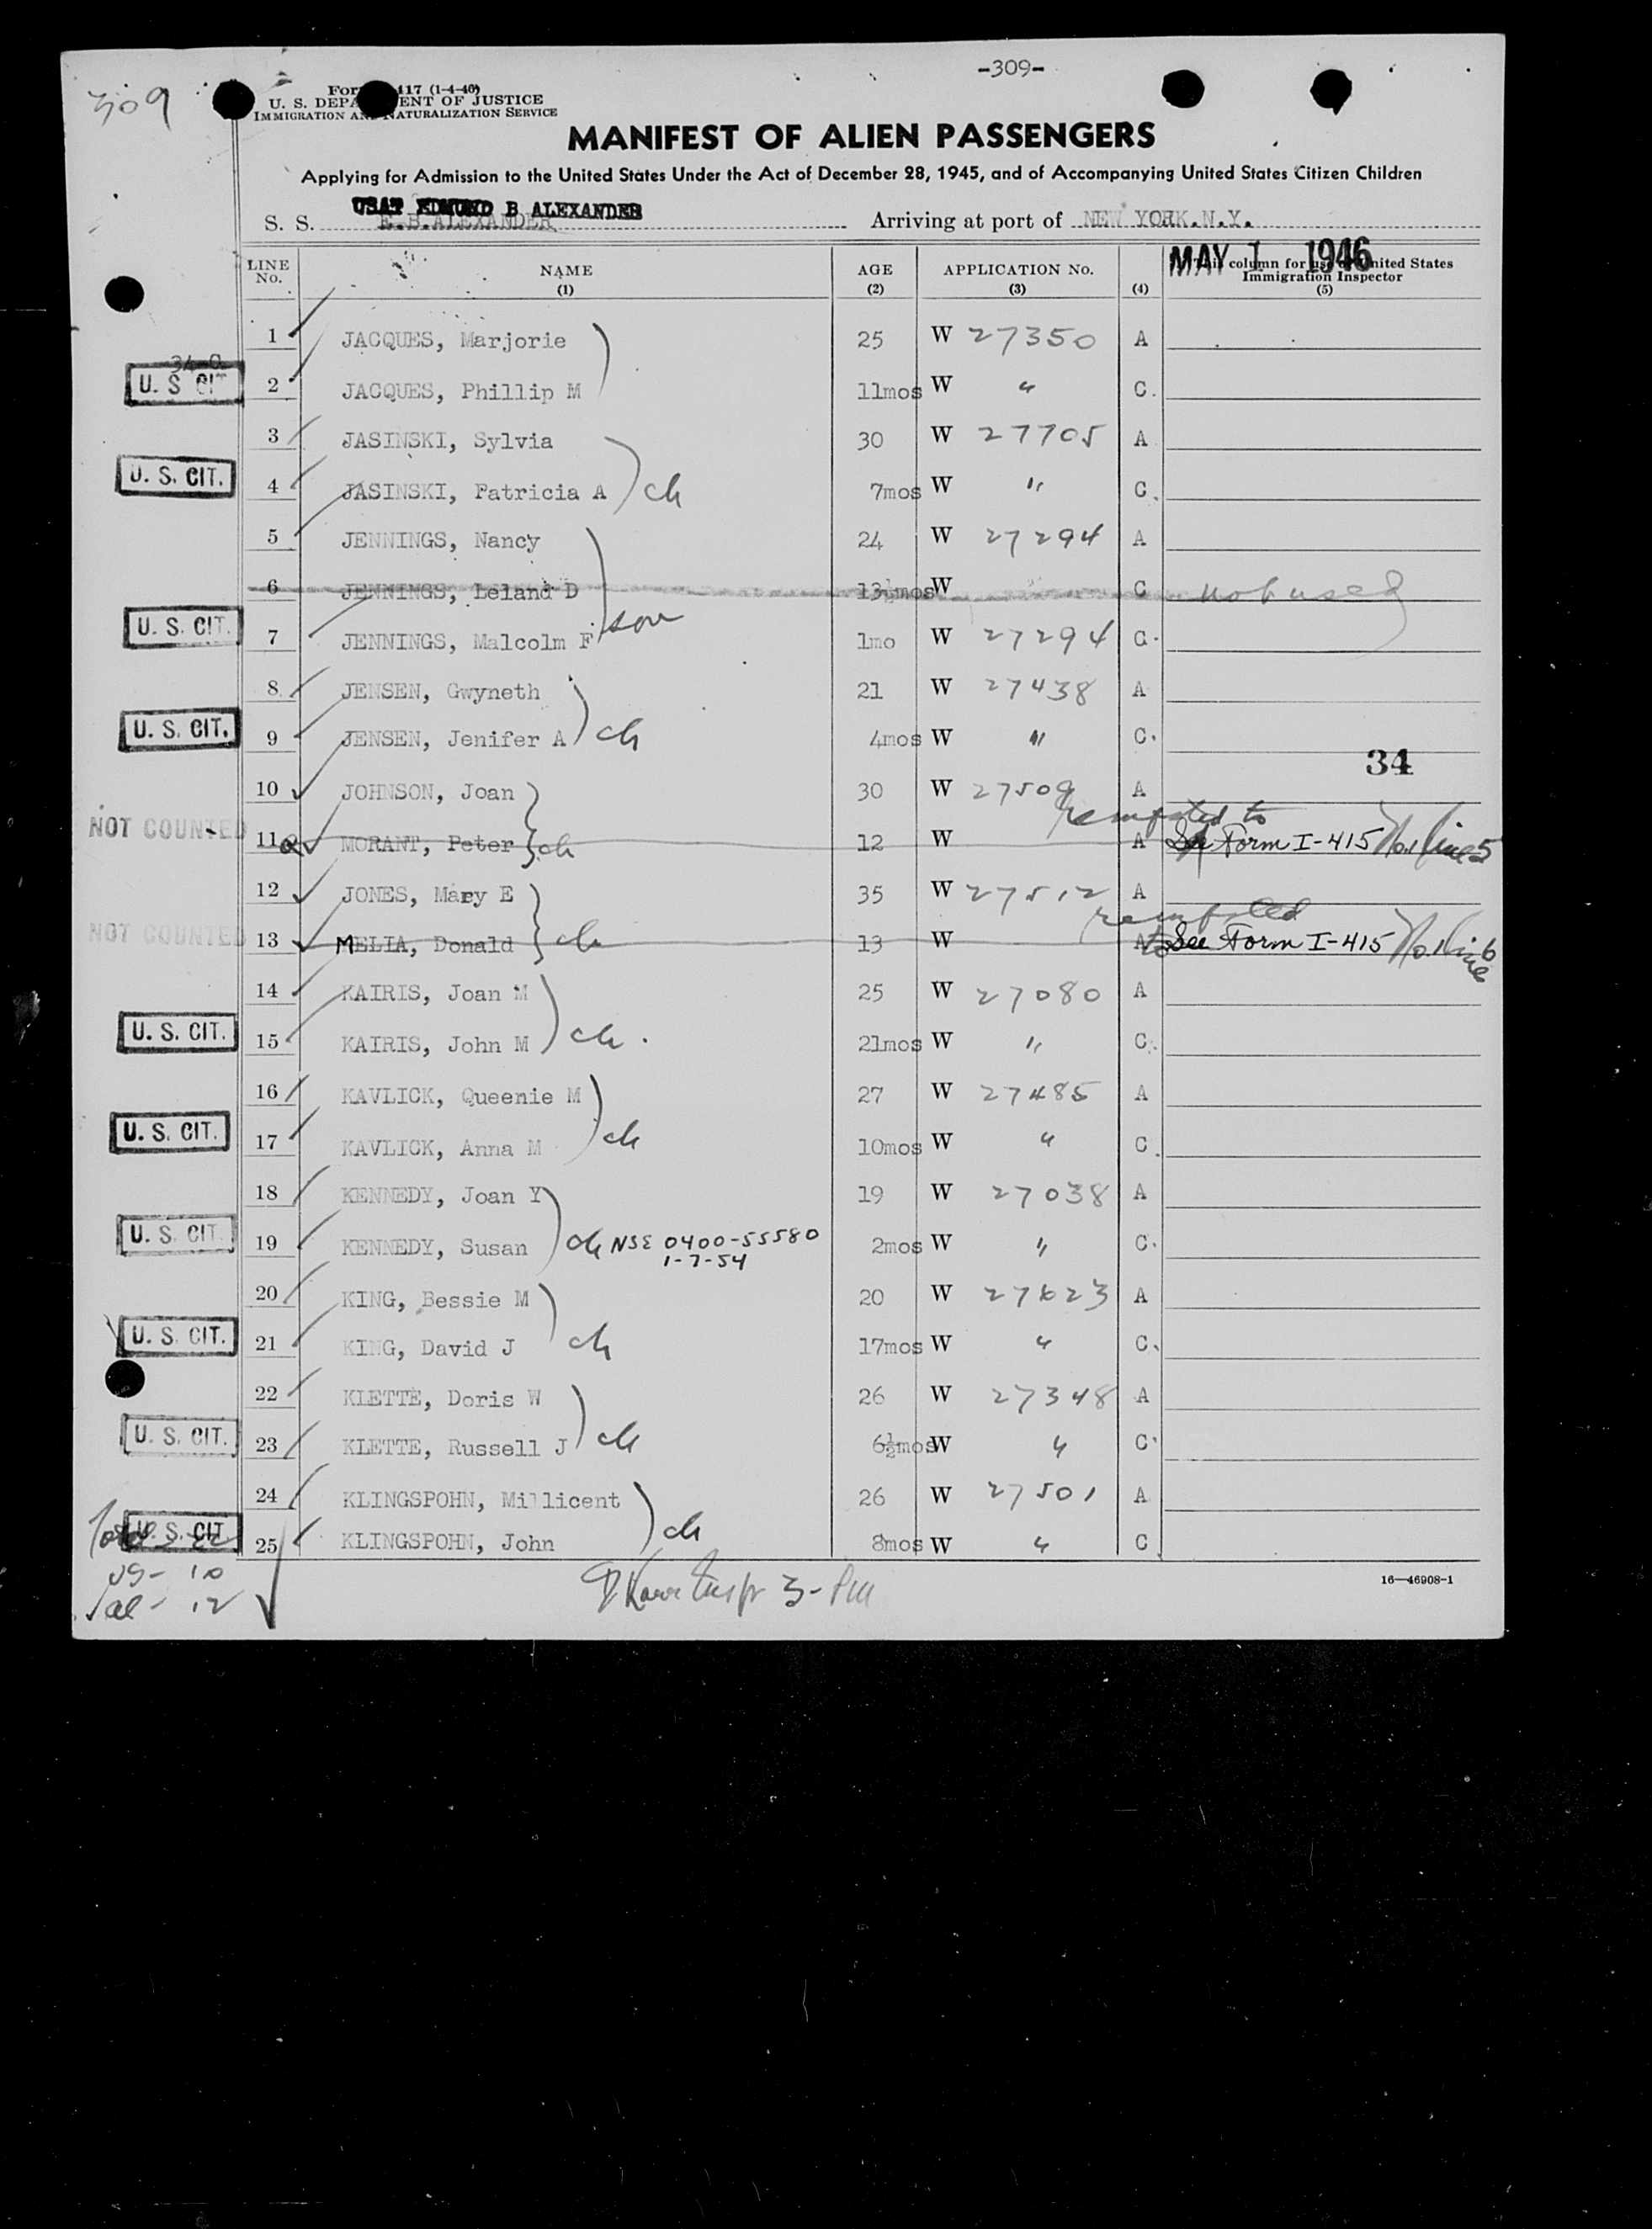 309
-309-
U. S. DEPARTMENT OF JUSTICE
IMMIGRATION AND NATURALIZATION SERVICE
MANIFEST OF ALIEN PASSENGERS
Applying for Admission to the United States Under the Act of December 28, 1945, and of Accompanying United States Citizen Children
USAT EDMUND B ALEXANDER
S. S. E.B.ALEXANDER Arriving at port of NEW YORK.N.Y.
MAY 1 1946
LINE No. NAME (1) AGE (2) APPLICATION No. (3) (4) This column for use of United States Immigration Inspector (5)
1 JACQUES, Marjorie 25 W 27350 A
U. S CIT 2 JACQUES, Phillip M 11mos W " C.
3 JASINSKI, Sylvia 30 W 27705 A
U. S. CIT. 4 JASINSKI, Patricia A ch 7mos W " C.
5 JENNINGS, Nancy 24 W 27294 A
6 JENNINGS, Leland D 13½mos W C not used
U. S. CIT. 7 JENNINGS, Malcolm F son 1mo W 27294 C.
8 JENSEN, Gwyneth 21 W 27438 A
U. S. CIT. 9 JENSEN, Jenifer A ch 4mos W " C.
34
10 JOHNSON, Joan 30 W 27509 A
NOT COUNTED 11 MORANT, Peter ch 12 W A See Form I-415 No.1 line 5
12 JONES, Mary E 35 W 27512 A
NOT COUNTED 13 MELIA, Donald ch 13 W A See Form I-415 No.1 line 6
14 KAIRIS, Joan M 25 W 27080 A
U. S. CIT. 15 KAIRIS, John M ch. 21mos W " C.
16 KAVLICK, Queenie M 27 W 27485 A
U. S. CIT. 17 KAVLICK, Anna M ch 10mos W " C.
18 KENNEDY, Joan Y 19 W 27038 A
U. S. CIT. 19 KENNEDY, Susan ch NSE 0400-55580 2mos W " C.
1-7-54
20 KING, Bessie M 20 W 27623 A
U. S. CIT. 21 KING, David J ch 17mos W " C.
22 KLETTE, Doris W 26 W 27348 A
U. S. CIT. 23 KLETTE, Russell J ch 6½mos W " C.
24 KLINGSPOHN, Millicent 26 W 27501 A
U. S. CIT 25 KLINGSPOHN, John ch 8mos W " C
US- 10
al- 12
16—46908-1